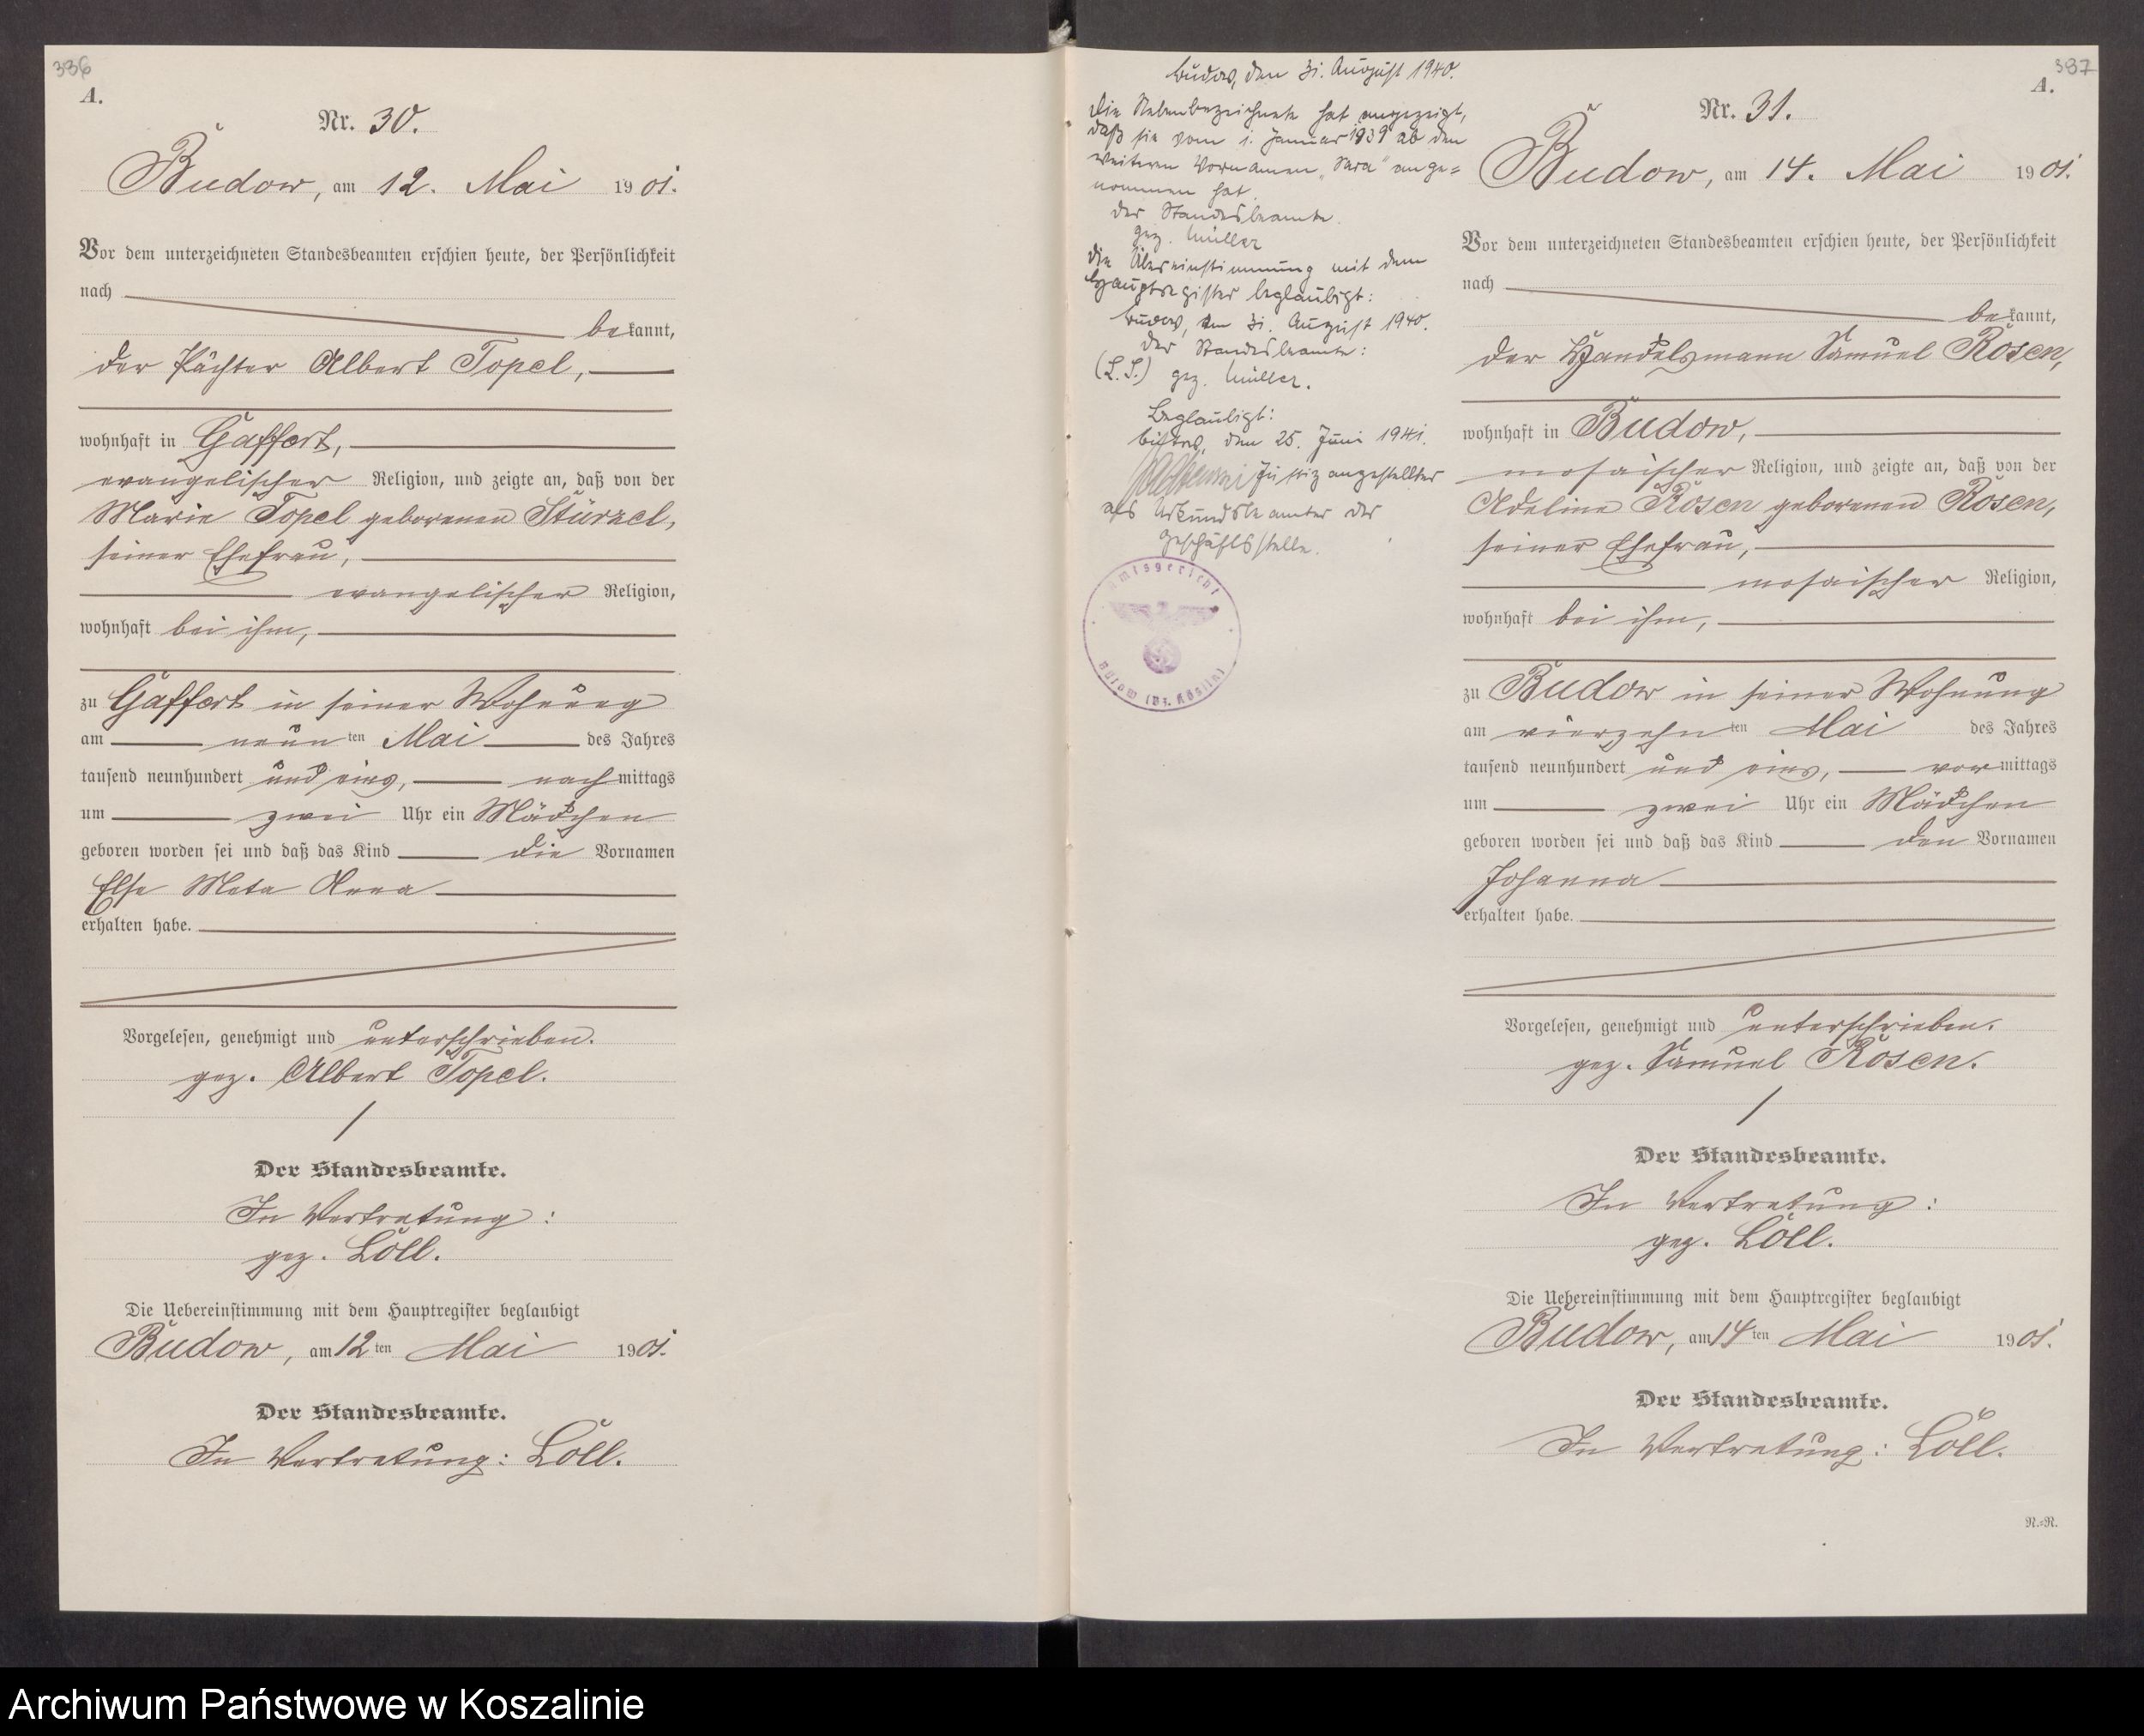 336
A.
Nr. 30.
Budow, am 12. Mai 1901.
Vor dem unterzeichneten Standesbeamten erschien heute, der Persönlichkeit
nach
bekannt,
der Pächter Albert Topel,
wohnhaft in Gaffert,
evangelischer Religion, und zeigte an, daß von der
Marie Topel geborenen Stürzel,
seiner Ehefrau,
evangelischer Religion,
wohnhaft bei ihm,
zu Gaffert in seiner Wohnung
am neunten Mai des Jahres
tausend neunhundert und eins, nachmittags
um zwei Uhr ein Mädchen
geboren worden sei und daß das Kind die Vornamen
Else Meta Anna
erhalten habe.
Vorgelesen, genehmigt und unterschrieben.
gez. Albert Topel.
Der Standesbeamte.
In Vertretung:
gez. Löll.
Die Uebereinstimmung mit dem Hauptregister beglaubigt
Budow, am 12ten Mai 1901.
Der Standesbeamte.
In Vertretung: Löll.
Budow, den 31. August 1940.
Die Nebenbezeichnete hat angezeigt,
daß sie vom 1. Januar 1939 ab den
weiteren Vornamen „Sara" ange=
nommen hat.
Der Standesbeamte.
gez. Müller
Die Übereinstimmung mit dem
Hauptregister beglaubigt:
Budow, den 31. August 1940.
Der Standesbeamte:
(L.S.) gez. Müller.
Beglaubigt:
Bütow, den 25. Juni 1941.
Justizangestellter
als Urkundsbeamter der
Geschäftsstelle.
Amtsgericht
Bütow (Bz. Köslin)
387
A.
Nr. 31.
Budow, am 14. Mai 1901.
Vor dem unterzeichneten Standesbeamten erschien heute, der Persönlichkeit
nach
bekannt,
der Handelsmann Samuel Rosen,
wohnhaft in Budow,
mosaischer Religion, und zeigte an, daß von der
Adeline Rosen geborenen Rosen,
seiner Ehefrau,
mosaischer Religion,
wohnhaft bei ihm,
zu Budow in seiner Wohnung
am vierzehnten Mai des Jahres
tausend neunhundert und eins, vormittags
um zwei Uhr ein Mädchen
geboren worden sei und daß das Kind den Vornamen
Johanna
erhalten habe.
Vorgelesen, genehmigt und unterschrieben.
gez. Samuel Rosen.
Der Standesbeamte.
In Vertretung:
gez. Löll.
Die Uebereinstimmung mit dem Hauptregister beglaubigt
Budow, am 14ten Mai 1901.
Der Standesbeamte.
In Vertretung: Löll.
N.=R.
Archiwum Państwowe w Koszalinie